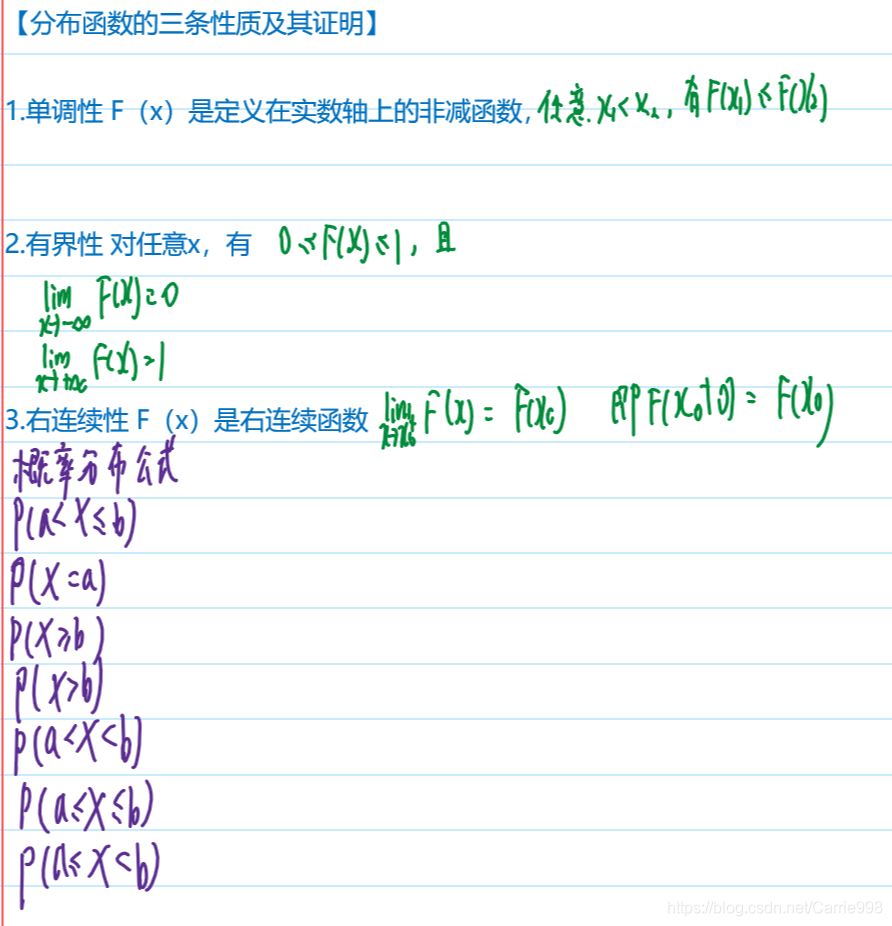 【分布函数的三条性质及其证明】
1.单调性 F（x）是定义在实数轴上的非减函数, 任意 x₁<x₂, 有F(x₁)≤F(x₂)
2.有界性 对任意x，有 0≤F(x)≤1, 且
lim x→-∞ F(x)=0
lim x→+∞ F(x)=1
3.右连续性 F（x）是右连续函数 lim x→x₀⁺ F(x) = F(x₀) 即F(x₀+0) = F(x₀)
概率分布公式
P(a<X≤b)
P(X=a)
P(X≥b)
P(X>b)
P(a<X<b)
P(a≤X≤b)
P(a≤X<b)
https://blog.csdn.net/Carrie998